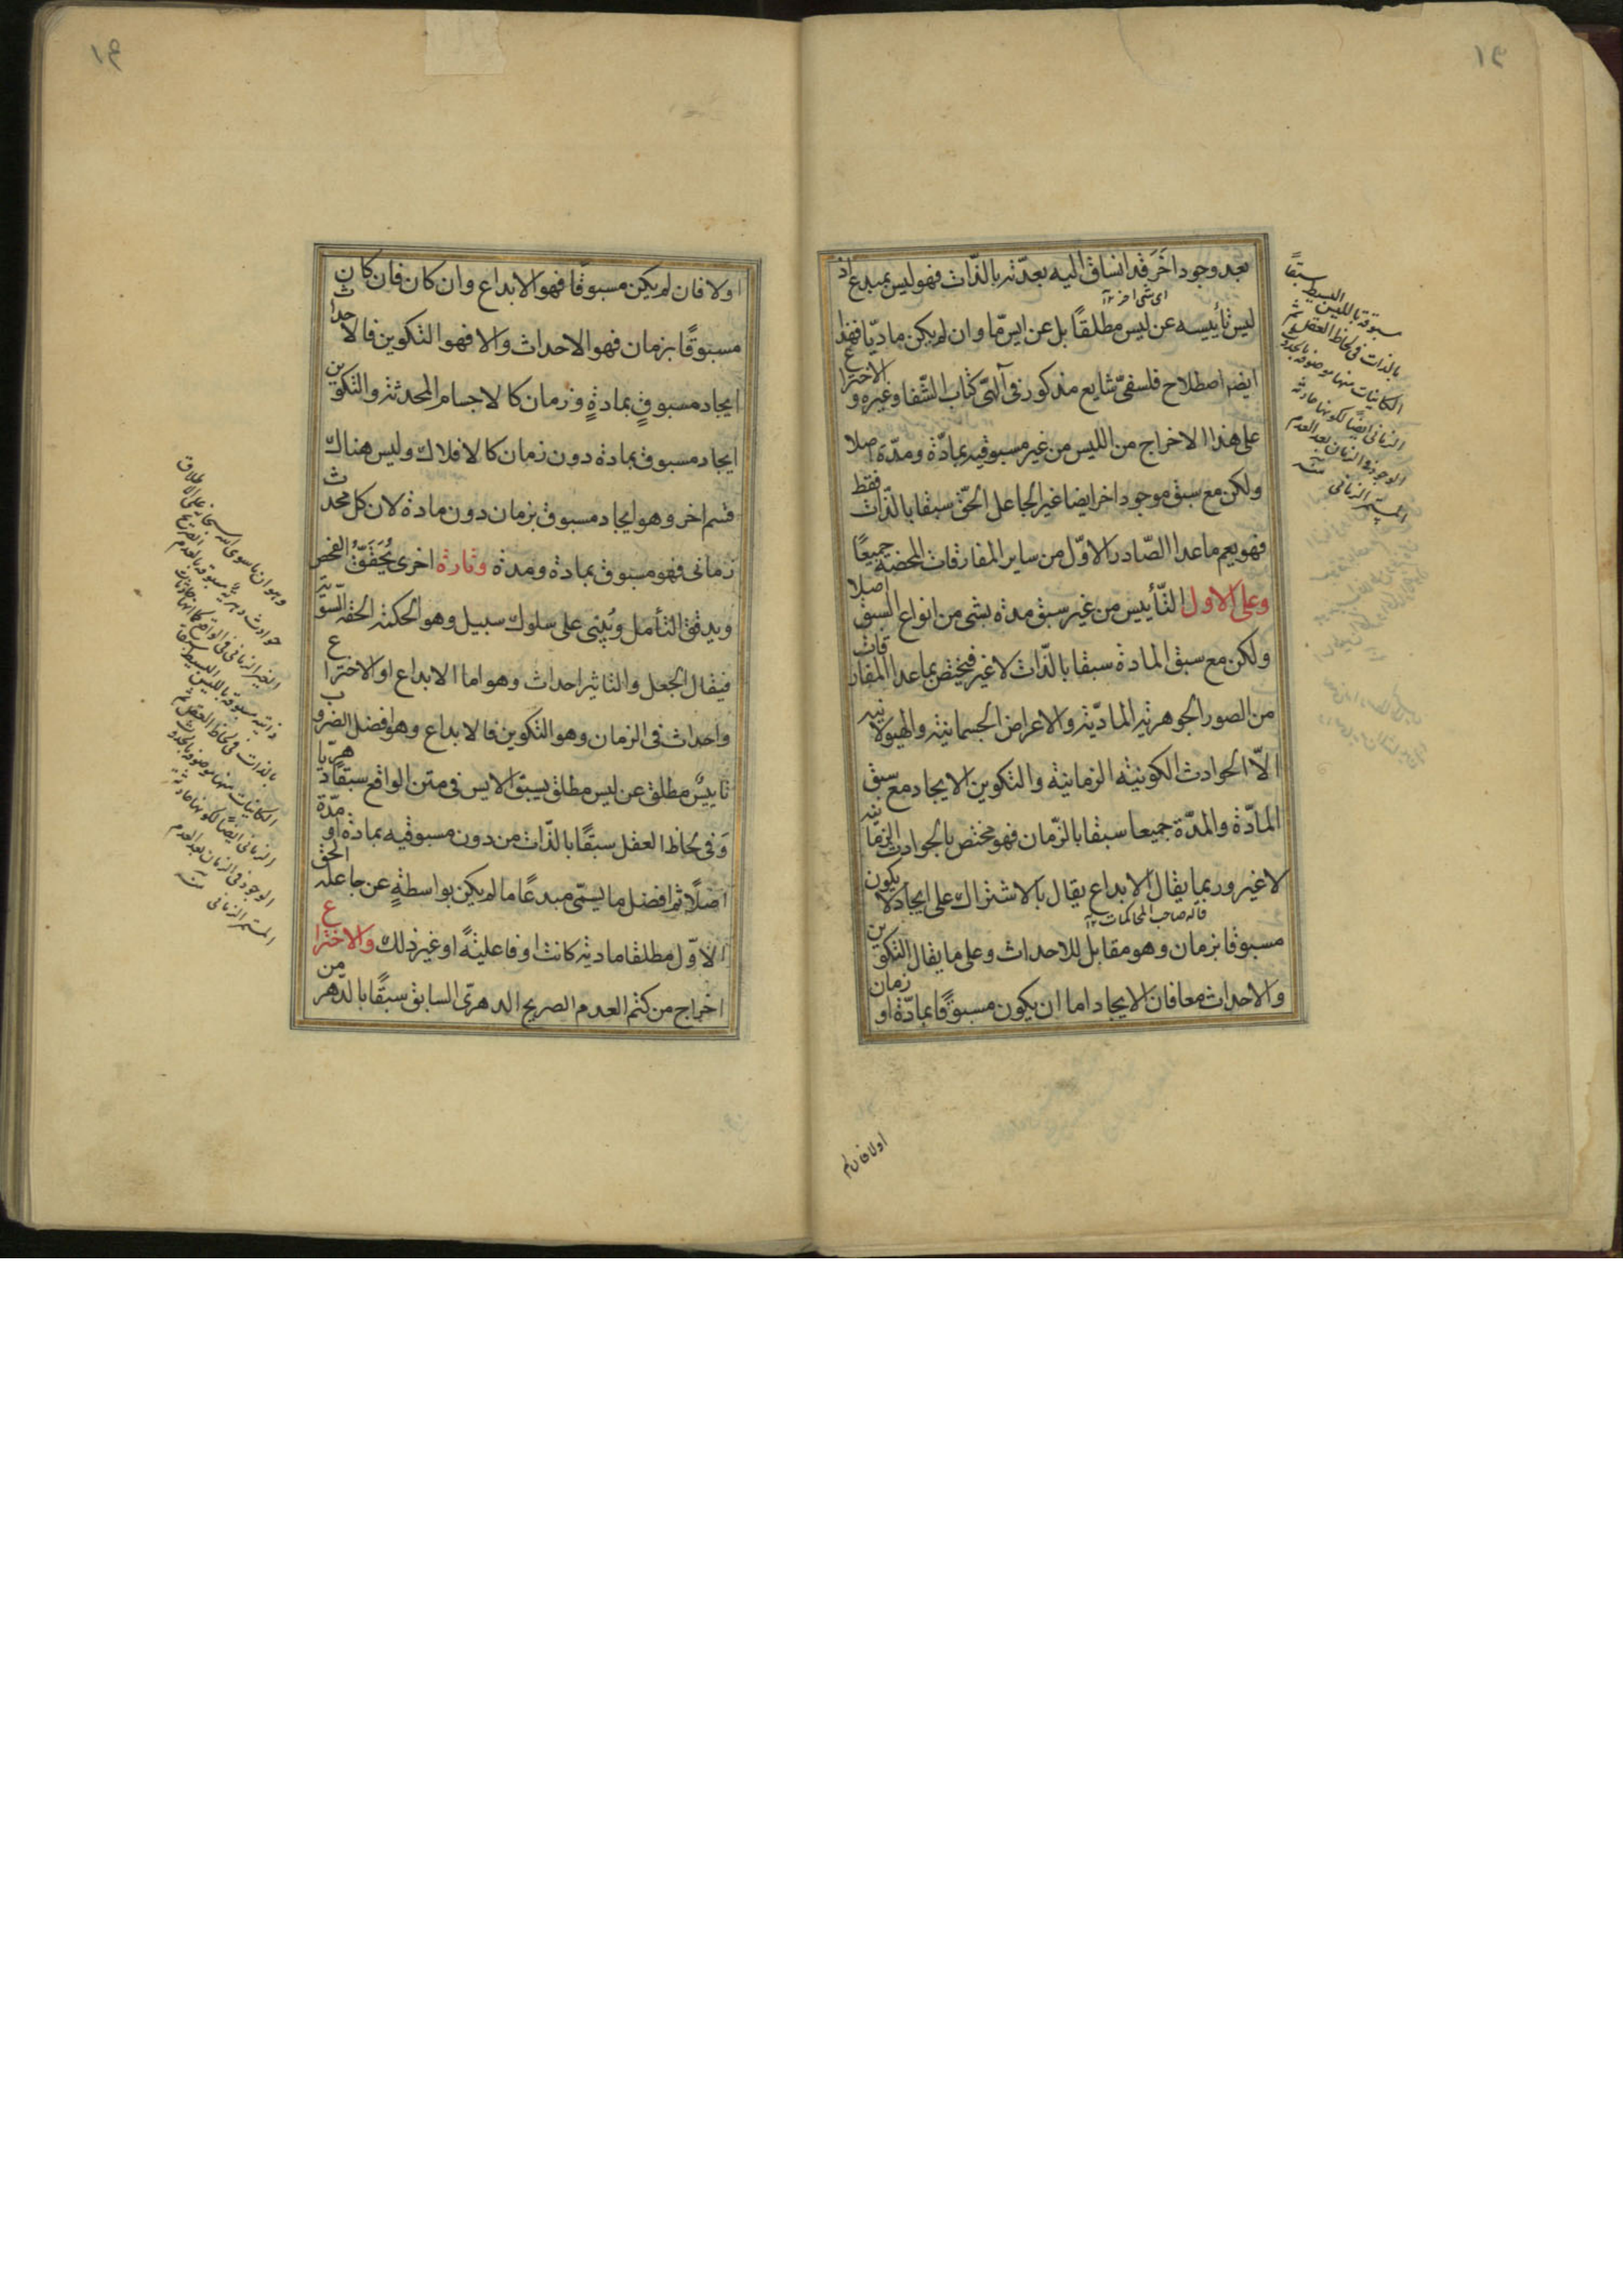 بعد وجود اخر قد انساق اليه بعدّته بالذّات فهو ليس بمبدع اذ
اى شى اخر
ليس تأييسه عن ليس مطلقاً بل عن ايس مّا وان لم يكن ماديّا فهذا
ايضا اصطلاح فلسفىّ شايع مذكور فى آلهىّ كتاب الشّفا وغيره والاختراع
على هذا الاخراج من الليس من غير مسبوقيه بمادّة ومدّة اصلا
ولكن مع سبق موجود اخر ايضا غير الجاعل الحقّ سبقا بالذّات فقط
فهو يعم ما عدا الصّادر الاوّل من ساير المفارقات المحضة جميعًا
وعلى الاول التّأييس من غير سبق مدة بشئ من انواع السبق اصلا
ولكن مع سبق المادة سبقا بالذّات لا غير فيختص بما عدا المفارقات
من الصور الجوهرية المادّية والاعراض الجسمانية والهيولانيه
الاّ الحوادث الكونيّة الزمانية والتكوين الايجاد مع سبق
المادّة والمدّة جميعا سبقا بالزّمان فهو مختص بالحوادث الزمانية
لا غير وربما يقال الابداع يقال بالاشتراك على ايجاد لا يكون
قاله صاحب المحاكمات
مسبوقا بزمان وهو مقابل للاحداث وعلى ما يقال التكوين
والاحداث معا فان الايجاد اما ان يكون مسبوقًا بمادّة او زمان
مسبوقة بالليس البسيط سبقاً
بالذات فى لحاظ العقل ثم
الكائنات منها موصوفة بالحدوث
الزمانى ايضًا لكونها حادثة
الوجود فى الزمان بعد العدم
المستمر الزمانى
اولا فان لم
اولا فان لم يكن مسبوقا فهو الابداع وان كان فان كان
مسبوقًا بزمان فهو الاحداث والا فهو التكوين فالاحداث
ايجاد مسبوقٍ بمادةٍ وزمان كالاجسام المحدثة والتكوين
ايجاد مسبوق بمادة دون زمان كالافلاك وليس هناك
قسم اخر وهو ايجاد مسبوق بزمان دون مادة لان كل محدث
زمانى فهو مسبوق بمادة ومدة وتارة اخرى يُحَقَّقُ الفحص
ويدقق التأمل ويُبْنى على سلوك سبيل وهو الحكمة الحقه السّويّة
فيقال الجعل والتاثير احداث وهو اما الابداع او الاختراع
واحداث فى الزمان وهو التكوين فالابداع وهو افضل الضروب
تاييسٌ مطلق عن ليس مطلق يسبق الايس فى متن الواقع سبقًا دهريّا
وَفى لحاظ العقل سبقًا بالذّات من دون مسبوقيه بمادة او مدّة
اصلًا ثم افضل ما يسمّى مبدعًا ما لم يكن بواسطةٍ عن جاعله الحق
الاوّل مطلقا مادية كانت او فاعليةً او غير ذلك والاختراع
اخراج من كتم العدم الصريح الدهرىّ السابق سبقًا بالدّهر من
وهو ان ما سوى الله سبحانه على الاطلاق
حوادث دهريّة مسبوقة بالعدم الصريح
الغير الزمانى فى الواقع كما انها حادثات
ذاتية مسبوقة بالليس البسيط سبقا
بالذات فى لحاظ العقل ثم
الكائنات منها موصوفة بالحدوث
الزمانى ايضًا لكونها حادثة
الوجود فى الزمان بعد العدم
المستمر الزمانى